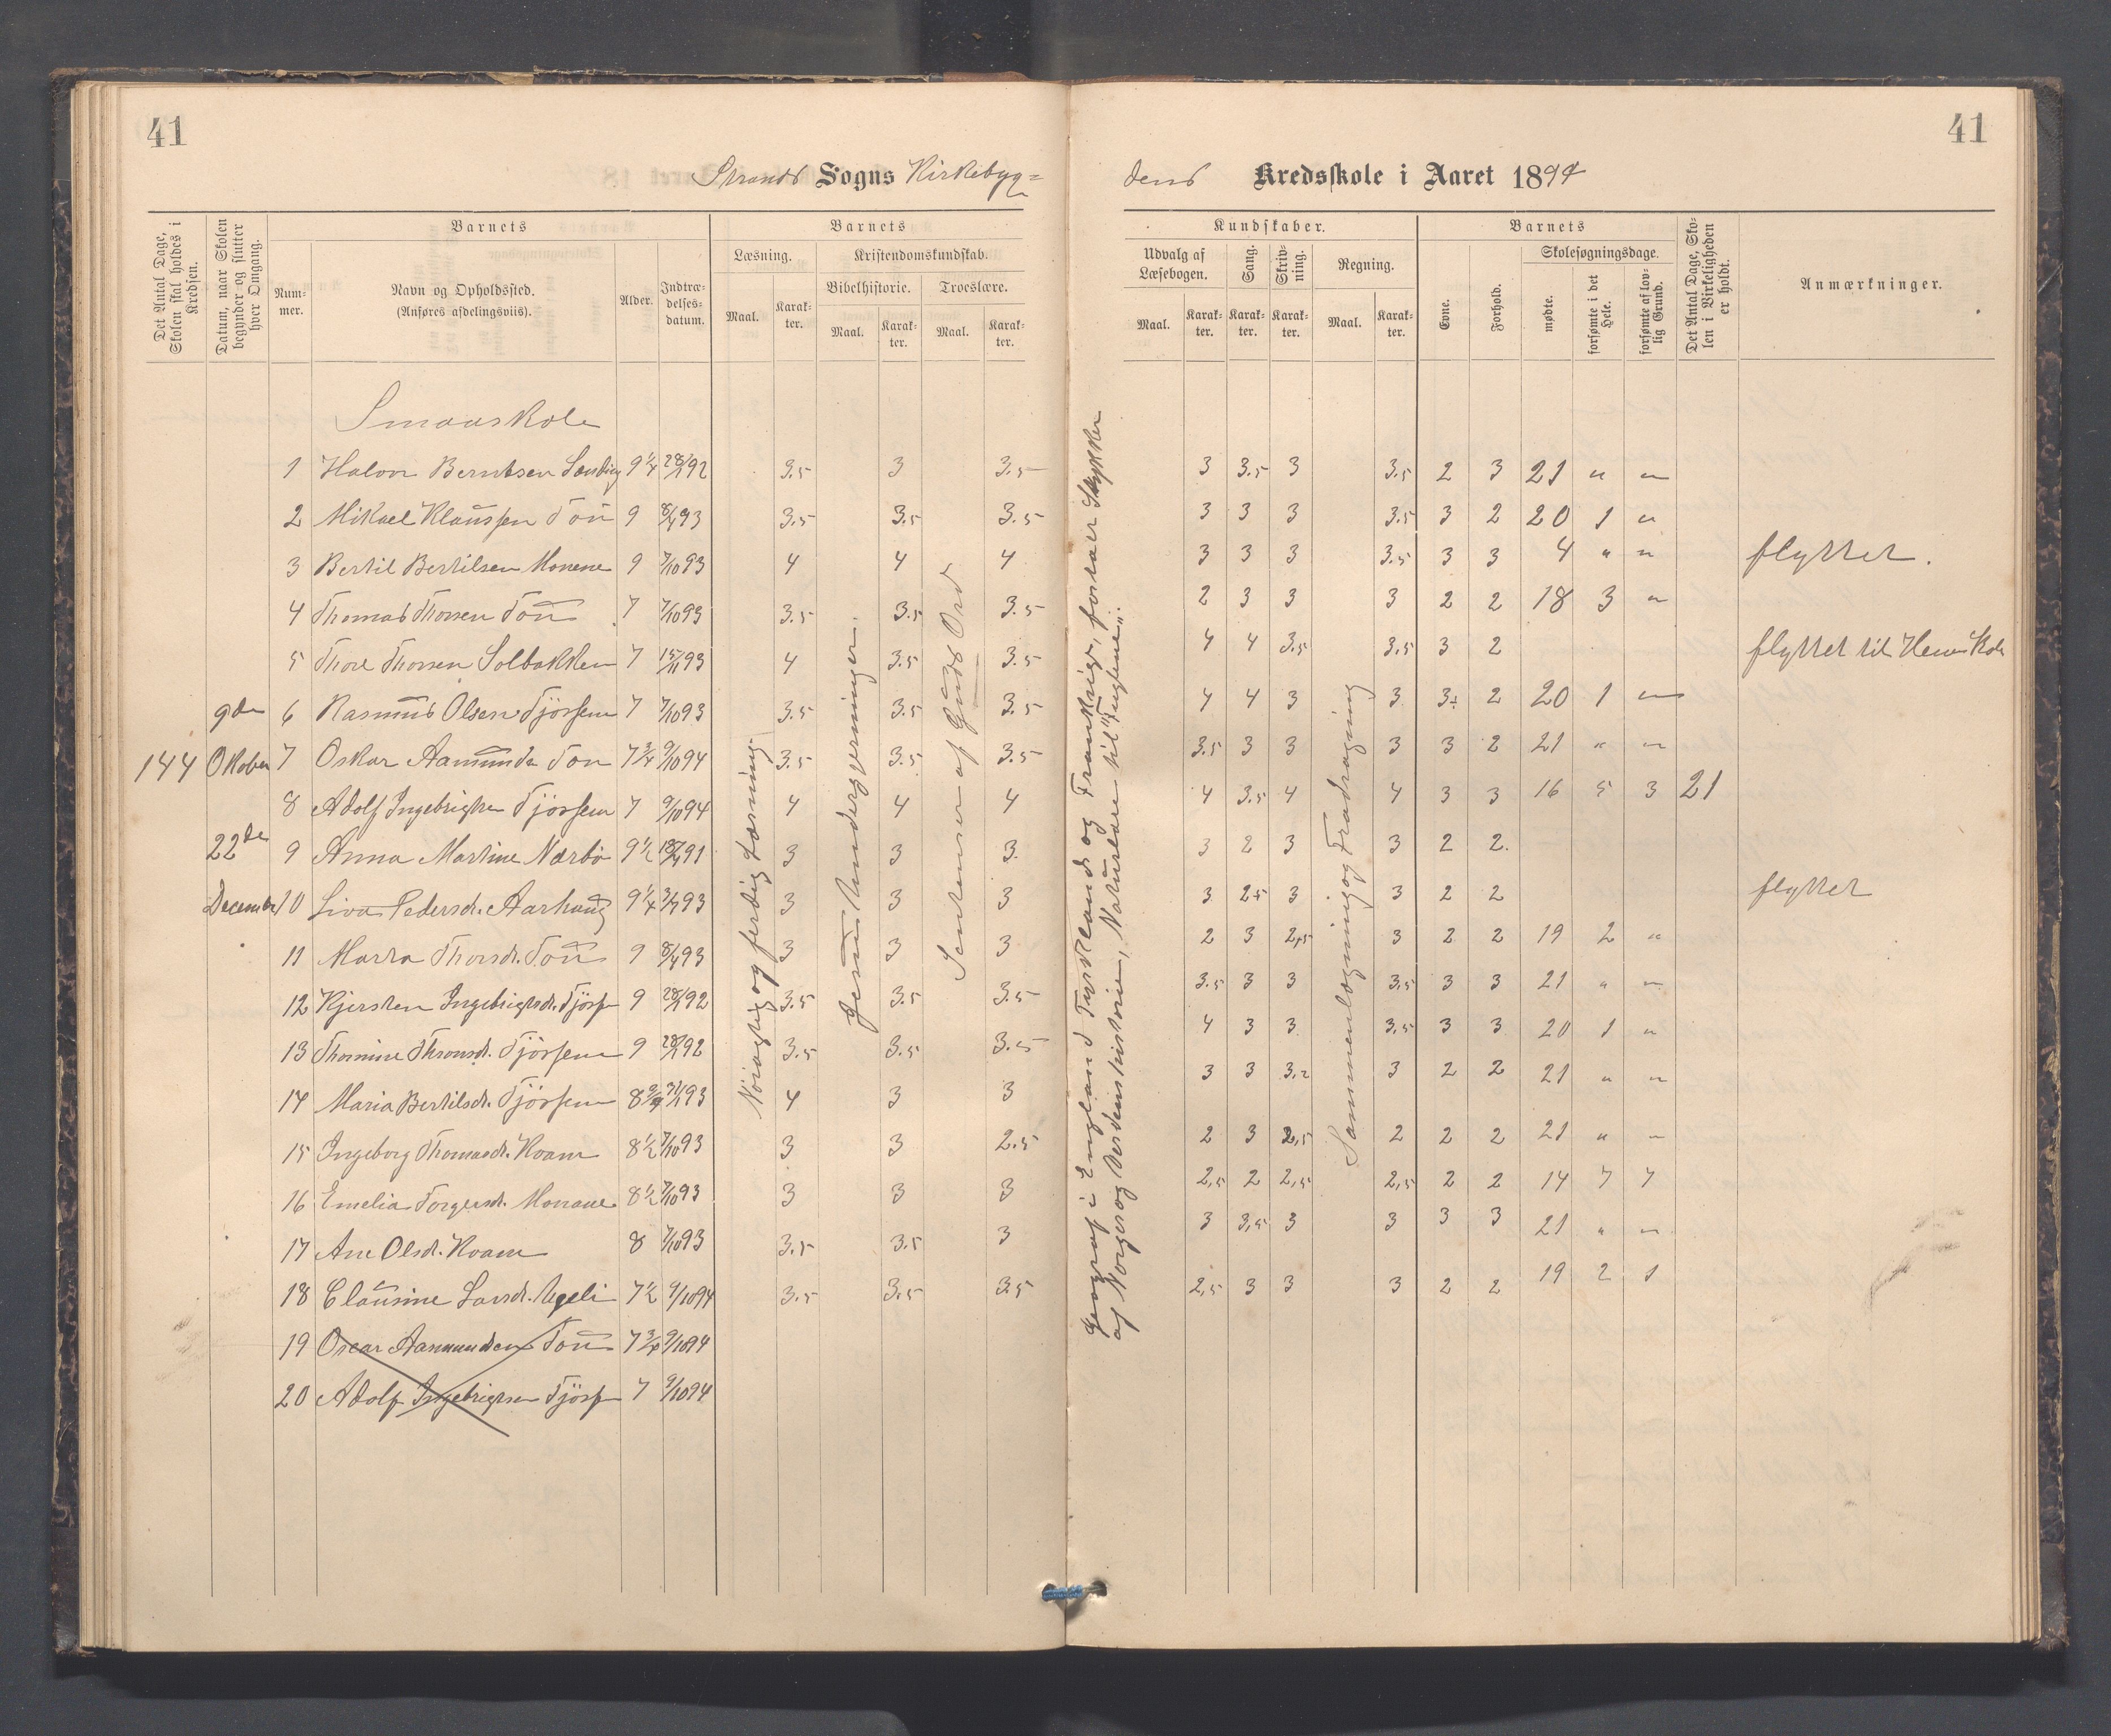 41
41
Strands Sogns Kirkebyg=
dens Kredsskole i Aaret 1894
Det Antal Dage, Skolen skal holdes i Kredsen.
Datum, naar Skolen begynder og slutter hver Omgang.
Barnets
Nummer.
Navn og Opholdssted.
(Anføres afdelingsviis).
Alder.
Indtrædelsesdatum.
Barnets
Læsning.
Kristendomskundskab.
Bibelhistorie. Troeslære.
Maal. Karakter. Maal. Karakter. Maal. Karakter.
Kundskaber.
Udvalg af Læsebogen. Sang. Skrivning. Regning.
Maal. Karakter. Karakter. Karakter. Maal. Karakter.
Barnets
Evne. Forhold.
Skolesøgningsdage.
mødte. forsømte i det Hele. forsømte af lovlig Grund.
Det Antal Dage, Skolen i Virkeligheden er holdt.
Anmærkninger.
Smaaskole
144
9de Oktober
22de December
1 Halvor Berntsen 9 1/4 28/1 92 3.5 3 3.5 3 3.5 3 3.5 2 3 21 " "
2 Mikael Klaussen Tou 9 8/4 93 3.5 3.5 3.5 3 3 3 3.5 3 2 20 1 "
3 Bertil Bertilsen Monene 9 7/10 93 4 4 4 3 3 3 3.5 3 3 4 " " flyttet.
4 Thomas Thorsen Tou 7 7/10 93 3.5 3.5 3.5 2 3 3 3 2 2 18 3 "
5 Thore Thorsen Solbakken 7 15/11 93 4 3.5 3.5 4 4 3.5 3.5 3 2 flyttet til
6 Rasmus Olsen Tjössem 7 7/10 93 3.5 3.5 3.5 4 4 3 3 3+ 2 20 1 "
7 Oskar Aamunds. Tou 7 3/4 9/10 94 3.5 3.5 3.5 3.5 3 3 3 3 2 21 " "
8 Adolf Ingebrigtsen Tjössem 7 9/10 94 4 4 4 4 3.5 4 4 3 3 16 5 3 21
9 Anna Martine Nærbö 9 1/2 91 3 3 3 3 2 3 3 2 2.
10 Liva Pedersd. Aarhaug 9 1/4 93 3 3 3 3 2+ 3 3 2 2 flyttet
11 Marta Thorsd. Tou 9 8/4 93 3 3 3 2 3 2,5 3 2 2 19 2 "
12 Kjersten Ingebrigtsd. Tjöss 9 28/1 92 3.5 3.5 3.5 3.5 3 3 3,5 3 3 21 " "
13 Thomine Thronsd. Tjössem 9 28/1 92 3.5 3.5 3.5 4 3 3 3,5 3 3 20 1 "
14 Maria Bertilsd. Tjössem 8 3/4 93 4 3 3 3 3 3,2 3 2 2 21 " "
15 Ingeborg Thomasd. Koam 8 1/2 7/10 93 3 3 2.5 2 3 2,5 2 2 2 21 " "
16 Emelia Torgersd. Monane 8 1/2 7/10 93 3 3 3 2,5 2 2,5 2,5 2 2 14 7 7
17 Ane Olsd. Koam 8 7/10 93 3.5 3.5 3 3 3,5 3 3 3 3 21 " "
18 Clausine Larsd. Ugeli 7 1/2 9/10 94 3.5 3.5 3.5 2,5 3 3 3 2 2 19 2 1
19 Oscar Aamundsen Tou 7 3/4 9/10 94
20 Adolf Ingebrigtsen Tjöss 7 9/10 94
Nöiagtig og ferdig Læsning.
Jesu Undergjerninger.
Sentenser af Guds Ord
Geografi: England Tyskland og Frankrige, fortalt Stykker
af Norges og Verdenshistorien, Naturlære til "Fuglene".
Sammenlægning og Fradragning